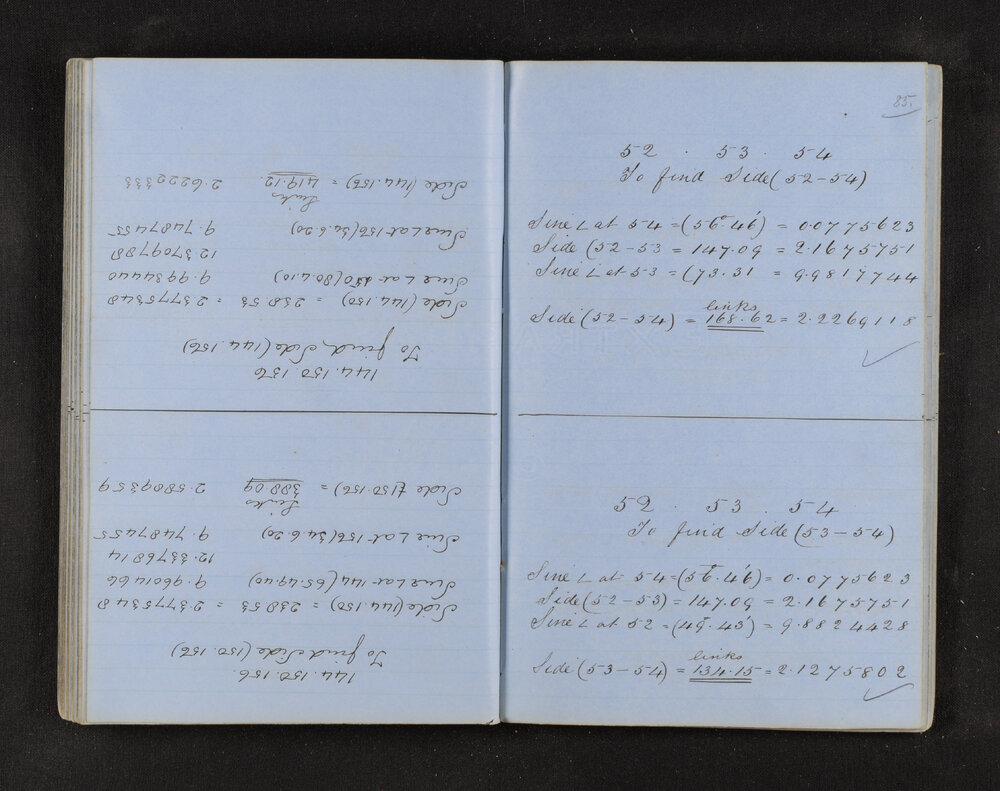 144.150.156.
To find Side (150.156)
Side (144.150) = 238.53 = 2.3775348
Sine ∠ at 144 (65.49.40) 9.9601466
12.3376814
Sine ∠ at 156 (34.6.20) 9.7487455
Links
Side (150.156) = 388.09 2.5889359
144.150.156
To find Side (144.156)
Side (144.150) = 238.53 = 2.3775348
Sine ∠ at 150 (80.4.10) 9.9934440
12.3709788
Sine ∠ at 156 (34.6.20) 9.7487455
Links
Side (144.156) = 419.12. 2.6222333
85.
52 . 53 . 54
To find Side (52-54)
Sine ∠ at 54 = (56°.46') = 0.0775623
Side (52-53 = 147.09 = 2.1675751
Sine ∠ at 53 = (73.31 = 9.9817744
links
Side (52-54) = 168.62 = 2.2269118
52 . 53 . 54
To find Side (53-54)
Sine ∠ at 54 = (56°.46') = 0.0775623
Side (52-53) = 147.09 = 2.1675751
Sine ∠ at 52 = (49°.43') = 9.8824428
links
Side (53-54) = 134.15 = 2.1275802